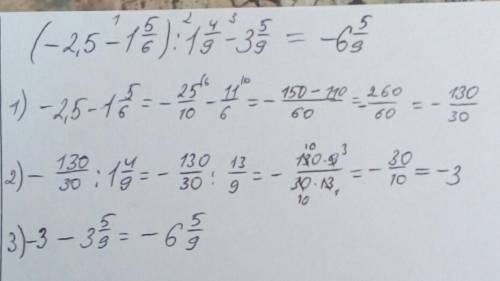 (-2,5 - 1 5/6) : 1 4/9 - 3 5/9 = -6 5/9
1) -2,5 - 1 5/6 = - 25/10 - 11/6 = - (150 - 110)/60 = - 260/60 = - 130/30
2) - 130/30 : 1 4/9 = - 130/30 : 13/9 = - (130 · 9)/(30 · 13) = - 30/10 = -3
3) -3 - 3 5/9 = - 6 5/9